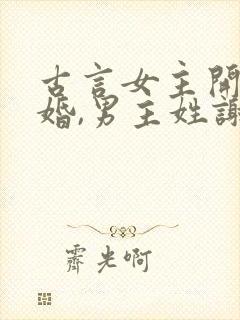 古言女主開
婚,男主姓謝
霽光啊